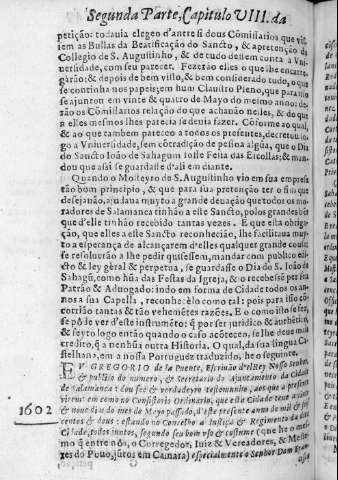 Segunda Parte, Capitulo VIII. da
petição: todauia elegeo d'antre si dous Comissarios que vis-
sem as Bullas da Beatificação do Sancto, & a pretenção do
Collegio de S. Augustinho, & de tudo dessem conta à Vni-
uersidade, com seu parecer. Fezerão elles o que lhe encarre-
garão; & depois de bem visto, & bem considerado tudo, o que
se continha nos papeis; em hum Claustro Pleno, que para isso
se ajuntou em vinte & quatro de Mayo do mesmo anno: de-
rão os Comissarios relação do que achauão nelles, & do que
a elles mesmos lhes parecia se deuia fazer. Cõforme ao qual,
& ao que tambem pareceo a todos os presentes, decretou lo-
go a Vniuersidade, sem cõtradição de pessoa algũa, que o Dia
do Sancto Ioão de Sahagum fosse Feita das Escollas; & man-
dou que assi se guardasse d'ali em diante.
Quando o Mosteyro de S. Augustinho vio em sua empresa
tão bom principio, & que para sua pretenção ter o fim que
desejauão, ajudaua muyto a grande deuação que todos os mo-
radores de Salamanca tinhão a este Sancto, polos grandes bẽs
que d'elle tinhão recebido tantas vezes. E que esta obriga-
ção, que elles a este Sancto reconhecião, lhe facilitaua muy-
to a esperança de alcançarem d'elles qualquer grande cousa;
se resoluerão a lhe pedir quisessem, mandar com publico edi-
cto & ley géral & perpetua, se guardasse o Dia do S. Ioão de
Sahagũ, como hũa das Festas da Igreja, & o recebesse por seu
Patrão & Aduogado: indo em forma de Cidade todos os an-
nos a sua Capella, reconhecèlo como tal: pois para isso cõ-
corrião tantas & tão vehementes razões. E o como isto se fez,
se pó de ver d'este instrumẽto; q̃ por ser juridico & authẽtico,
& feyto logo então quando o caso aconteceo, se lhe deue mais
credito, q̃ a nenhũa outra Historia. O qual, da sua lingua Ca-
stelhana, em a nossa Portuguez traduzido, he o seguinte.
EV GREGORIO de la Puente, Escriuão d'elRey Nosso Senhor,
& publico do numero, & Secretario do Ajuntamento da Cidade
de Salamanca: dou feè & verdadeyro testemunho, aos que a presente
virem em como no Consistorio Ordinario, que esta Cidade teue aos vinte
1602
& noue dias do mes de Mayo passado, d'este presente anno de mil & seis
centos & dous: estando no Concelho a Iustiça & Regimento da dita
Cidade, todos juntos, segundo seu bom vso & costume (que he o mes-
mo q̃ entre nòs, o Corregedor, Iuiz & Vereadores, & Mes-
tres do Pouo, jũtos em Camara) especialmente o Senhor Dom